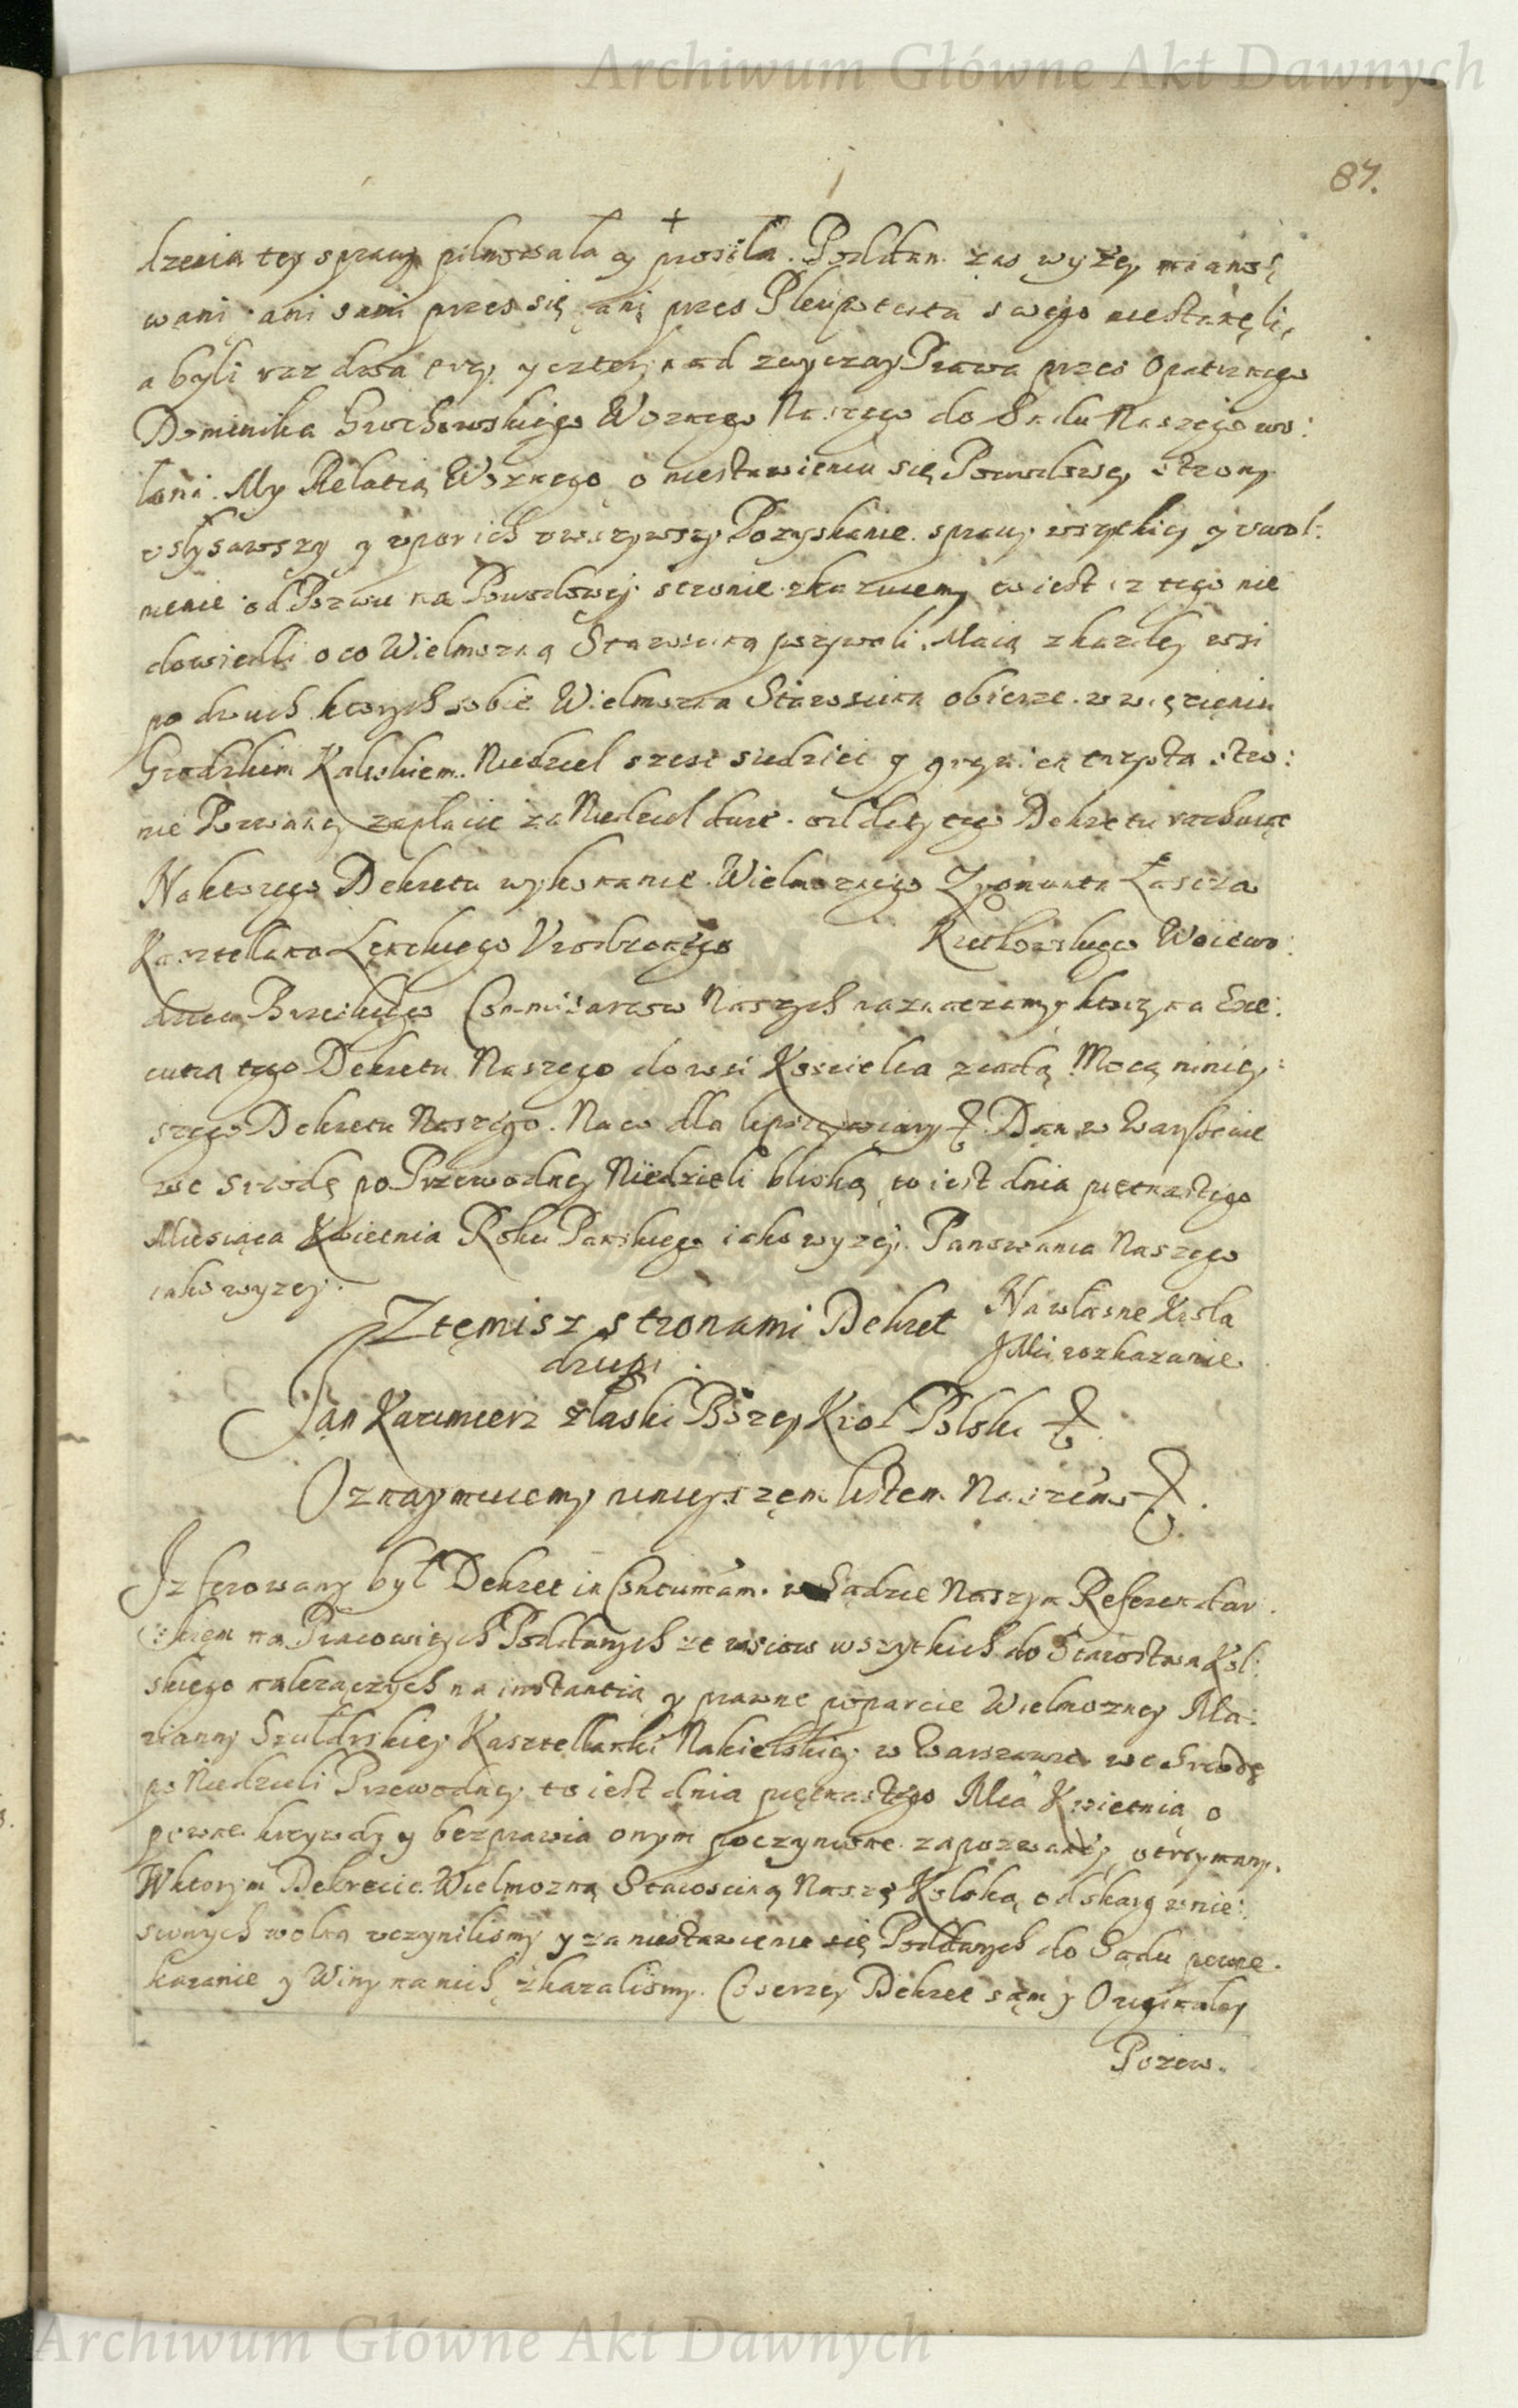 Archiwum Główne Akt Dawnych
87.
+
dzenia tey sprawy pilnowała y prosiła. Poddan. zas wyżey mianow
wani ani sami przes się ani przes Plenipotenta swego niestanęli,
a byli raz dwa trzy y czterj nad zwyczay Prawa przes Opatrznego
Dominika Grochowskiego Woznego Naszego do Sadu Naszego wo:
łani. My Relatią Woznego o niestawieniu się Powodowey strony
usłysawszy y upor ich uwazywszy Pozyskanie sprawy wszytkiey y uwol:
nienie od Pozwu na Powodowej stronie zkazuiemy to iest iz tego nie
dowiedli o co Wielmozną Starosciną pozywali. Maią z kazdey wsi
po dwuch ktorych sobie Wielmozna Staroscina obierze w więzieniu
Grodzkim Kaliskiem Niedziel szesc siedziec y grzywien trzysta stro:
nie Pozwaney zapłacic za Niedziel dwie od daty tego Dekretu rachuiąc
Na ktorego Dekretu wykonanie Wielmoznego Zygmunta Łascza
Kasztellana Lęnckiego Urodzonego Rutkowskiego Woiewo:
dzica Brzeskiego Commissarzow Naszych naznaczamy ktorzy na Exe:
cutią tego Dekretu Naszego do wsi Koscielca ziadą Mocą niniey:
szego Dekretu Naszego. Na co dla lepszey wiary &. Dan w Warszawie
we srzodę po Przewodney Niedzieli bliską to iest dnia piętnastego
Miesiąca Kwietnia Roku Panskiego iako wyzej. Panowania Naszego
iako wyzej.
Ztęmisz stronami Dekret
drugi
Na własne Krola
JMci rozkazanie.
Jan Kazimierz z łaski Bozey Krol Polski &.
Oznaymuiemy ninieyszęm listem Naszēm &.
Iz ferowany był Dekret in Contumām. w Sądzie Naszym Referendar
skiem na Pracowitych Poddanych ze wsiow wszytkich do Starostwa Kol:
skiego nalezączych na instantią y prawne poparcie Wielmozney Ma:
rianny Szułdrskiey Kasztellanki Nakielskiey w Warszawie we srzodę
po Niedzieli Przewodney to iest dnia piętnastego Mca Kwietnia o
pewne krzywdy y bezprawia onym poczynione zapozwaney otrzymany.
W ktorym Dekrecie Wielmozną Starosciną Naszę Kolską od skarg wnie:
sionych wolną uczynilismy y za niestawienie się Poddanych do Sądu pewne
karanie y Winy na nich zkazalismy. Co serzey Dekret sąm y Orginalny
Pozew.
Archiwum Główne Akt Dawnych